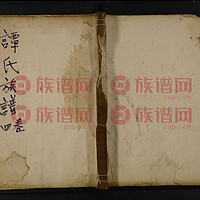 譚氏族譜四卷
族谱网
zupu.cn
族谱网
zupu.cn
族谱网
zupu.cn
族谱网
zupu.cn